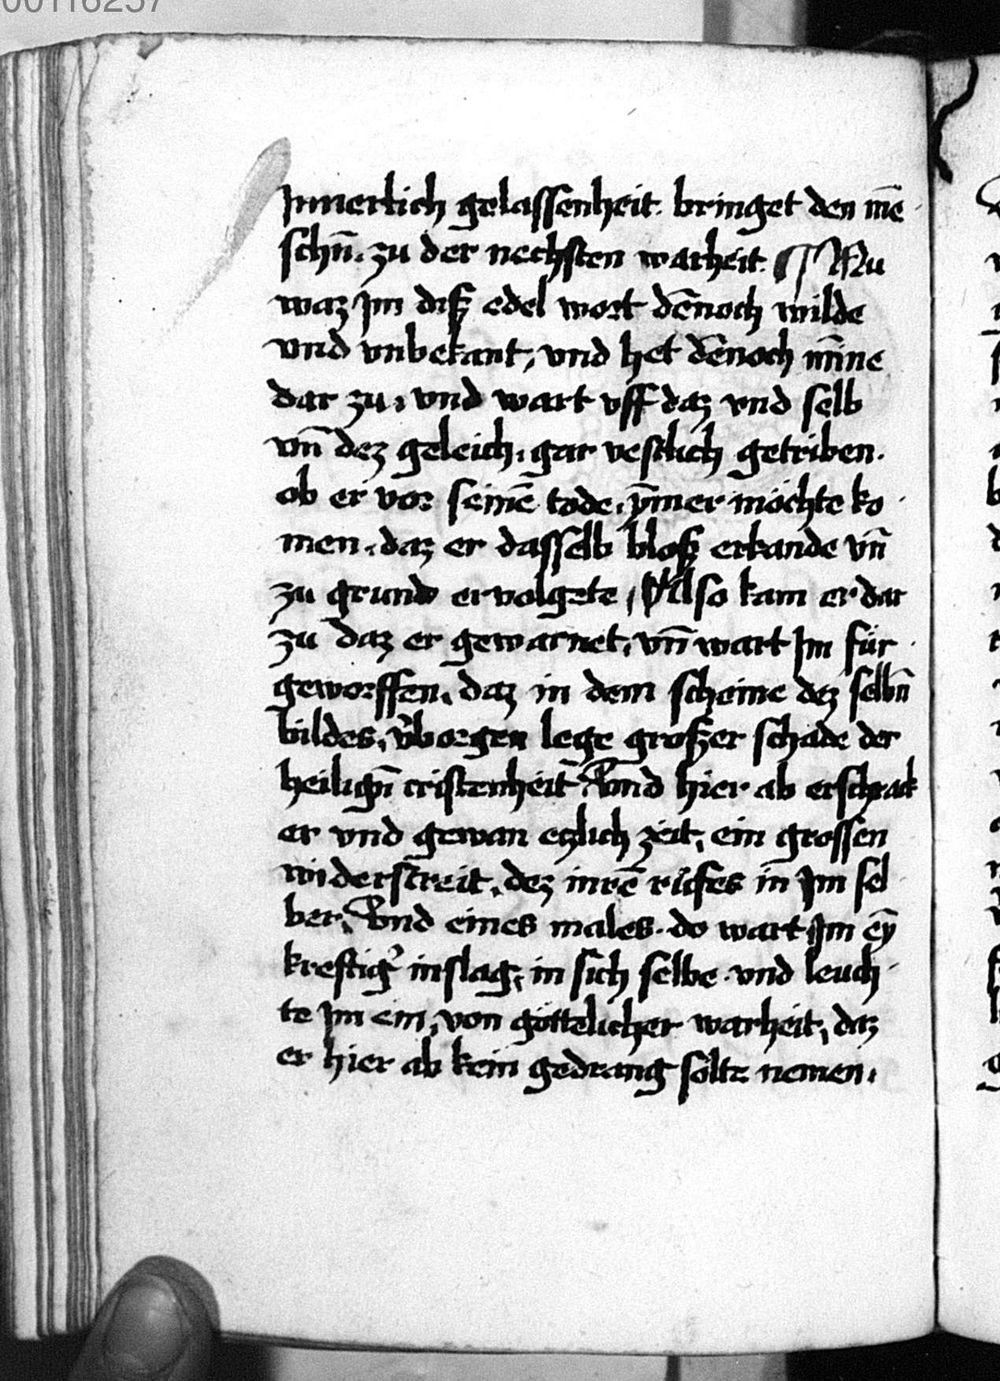 00116257
Innerlich gelassenheit. bringet den mē
schn̄. zu der nechsten warheit. ¶ Nu
waz Im diß edel wort dēnoch wilde
vnd vnbekant, vnd het dēnoch mīne
dar zu, vnd wart vff daz vnd selb
vn̄ dez geleich, gar vestlich getriben.
ob er vor seinē tode, ȳmer möchte ko
men, daz er dasselb bloß erkande vn̄
zu grund ervolgete, Also kam er dar
zu daz er gewarnet, vn̄ wart Im für
geworffen, daz in dem scheine dez selbn̄
bildes, v̄borgen lege großer schade der
heilign̄ cristenheit Vnd hier ab erschrack
er vnd gewan etzlich zeit, ein grossen
widerstreit, dez inrē rüfes in Im sel
ber, Vnd eines males. do wart Im eȳ
kreftig' inslag, in sich selbe. vnd leuch
te Im ein, von göttelicher warheit, daz
er hier ab kein gedrang sölte nemen,